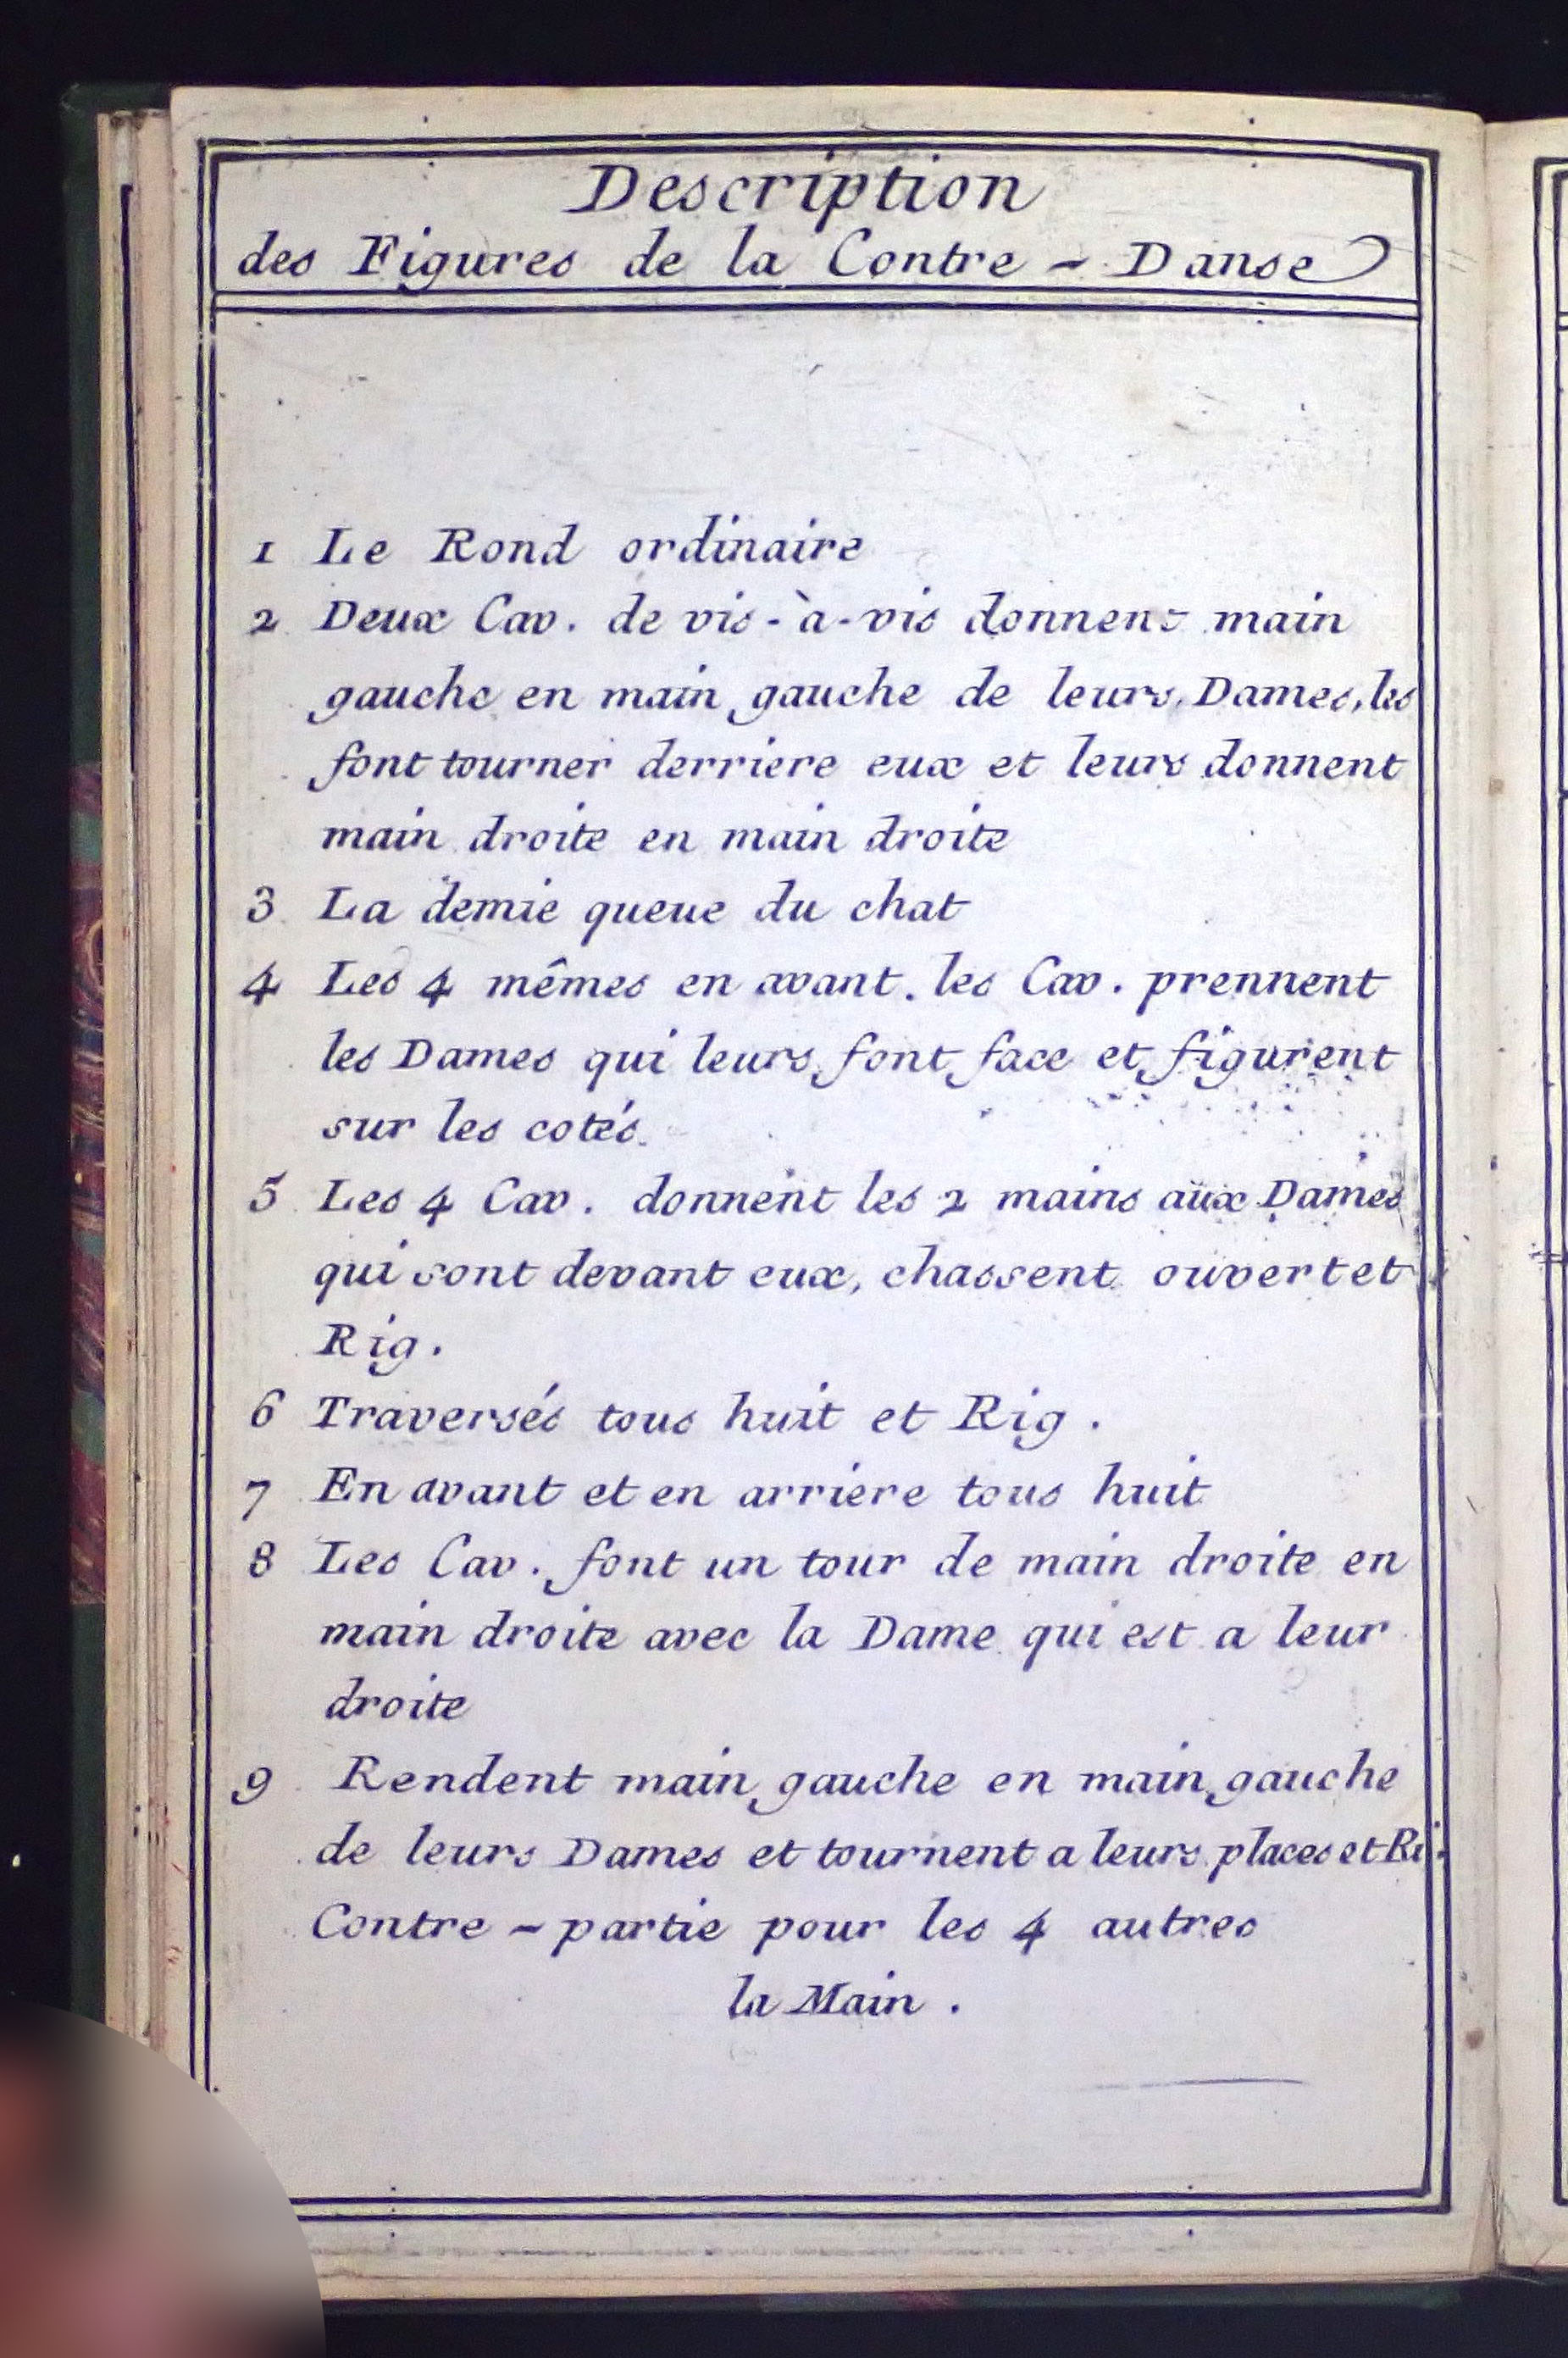 Description
des Figures de la Contre - Danse
1 Le Rond ordinaire
2 Deux Cav. de vis-à-vis donnent main
gauche en main gauche de leurs Dames, les
font tourner derriere eux et leurs donnent
main droite en main droite
3 La demie queue du chat
4 Les 4 mêmes en avant. les Cav. prennent
les Dames qui leurs font face et figurent
sur les cotés.
5 Les 4 Cav. donnent les 2 mains aux Dames
qui sont devant eux, chassent ouvert et
Rig.
6 Traversés tous huit et Rig.
7 En avant et en arriere tous huit
8 Les Cav. font un tour de main droite en
main droite avec la Dame qui est a leur
droite
9 Rendent main gauche en main gauche
de leurs Dames et tournent a leurs places et Ri.
Contre - partie pour les 4 autres
la Main.